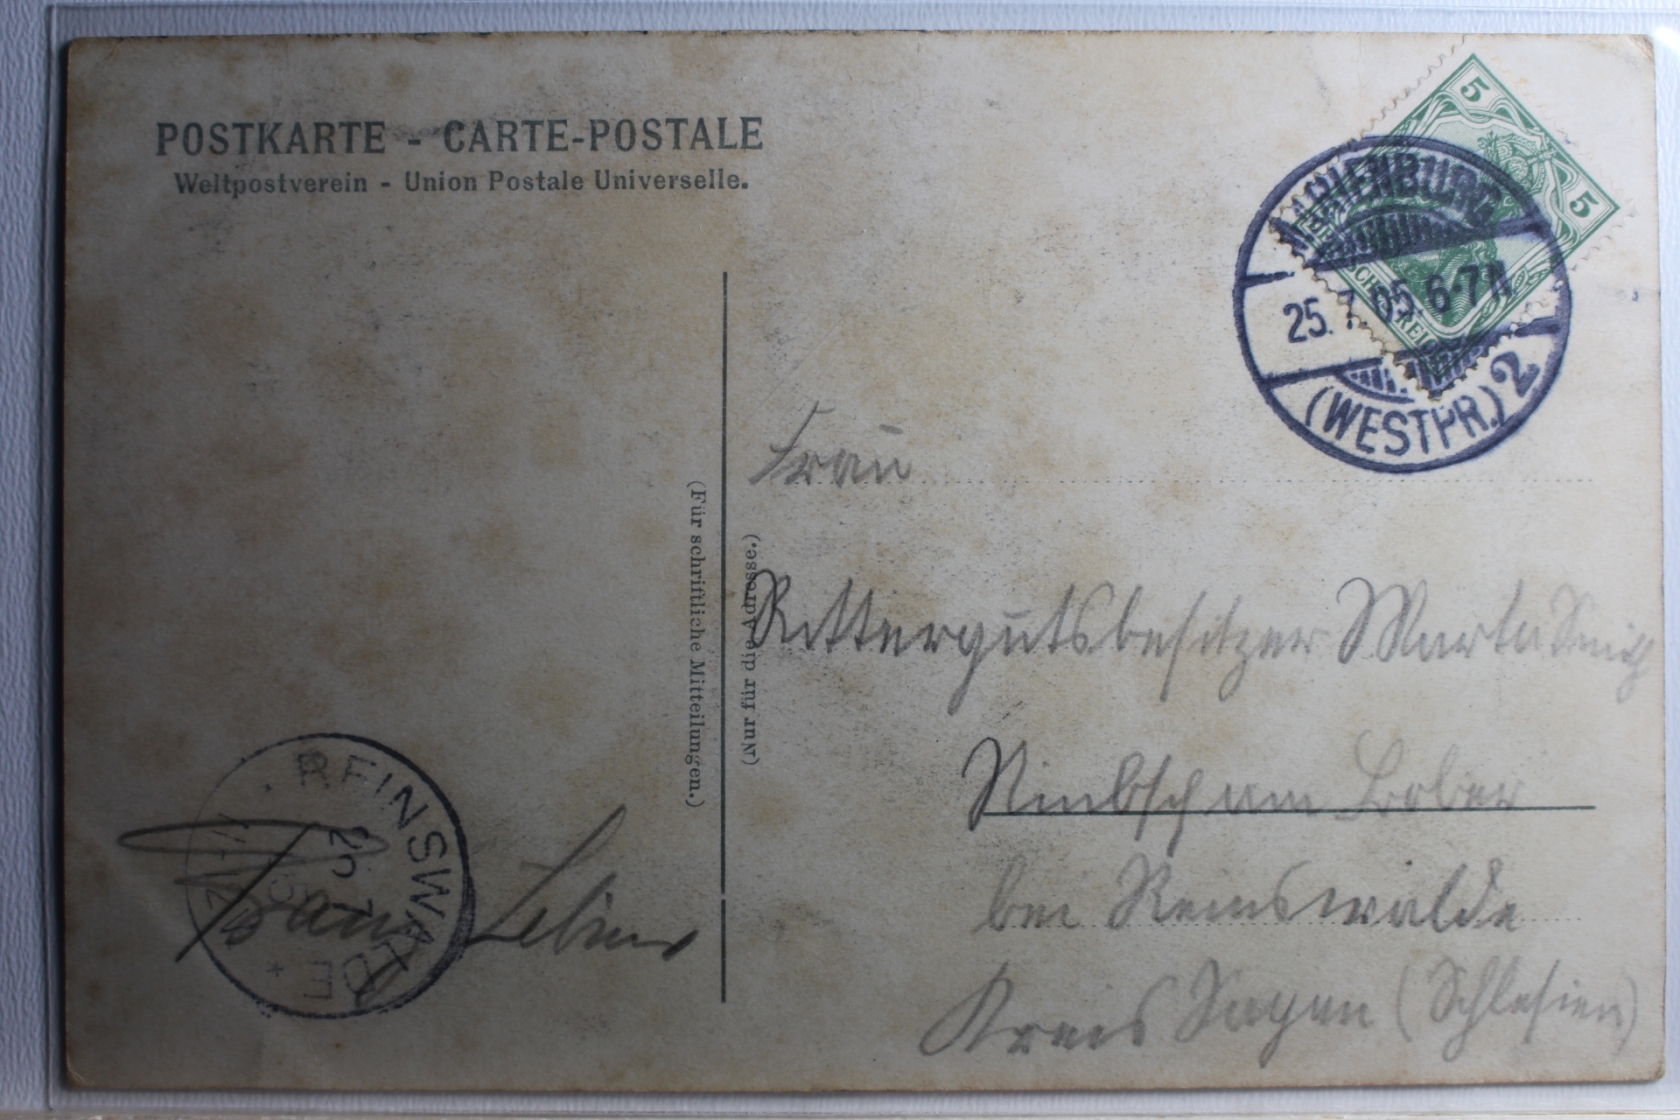 POSTKARTE - CARTE-POSTALE
Weltpostverein - Union Postale Universelle.
5
5
MARIENBURG
25. 7. 05. 6-7 N
(WESTPR.) 2
(Für schriftliche Mitteilungen.)
(Nur für die Adresse.)
Frau
Rittergutsbesitzer Marta
Nimbsch am Bober
bei Reinswalde
Kreis Sagan (Schlesien)
REINSWALDE